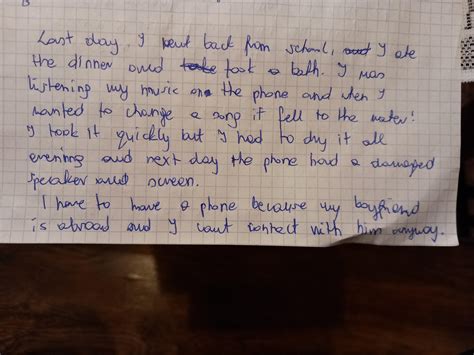 Last day I went back from school, I ate
the dinner and took a bath. I was
listening my music on the phone and when I
wanted to change a song it fell to the water!
I took it quickly but I had to dry it all
evening and next day the phone had a damaged
speaker and screen.
I have to have a phone because my boyfriend
is abroad and I cant contact with him anyway.